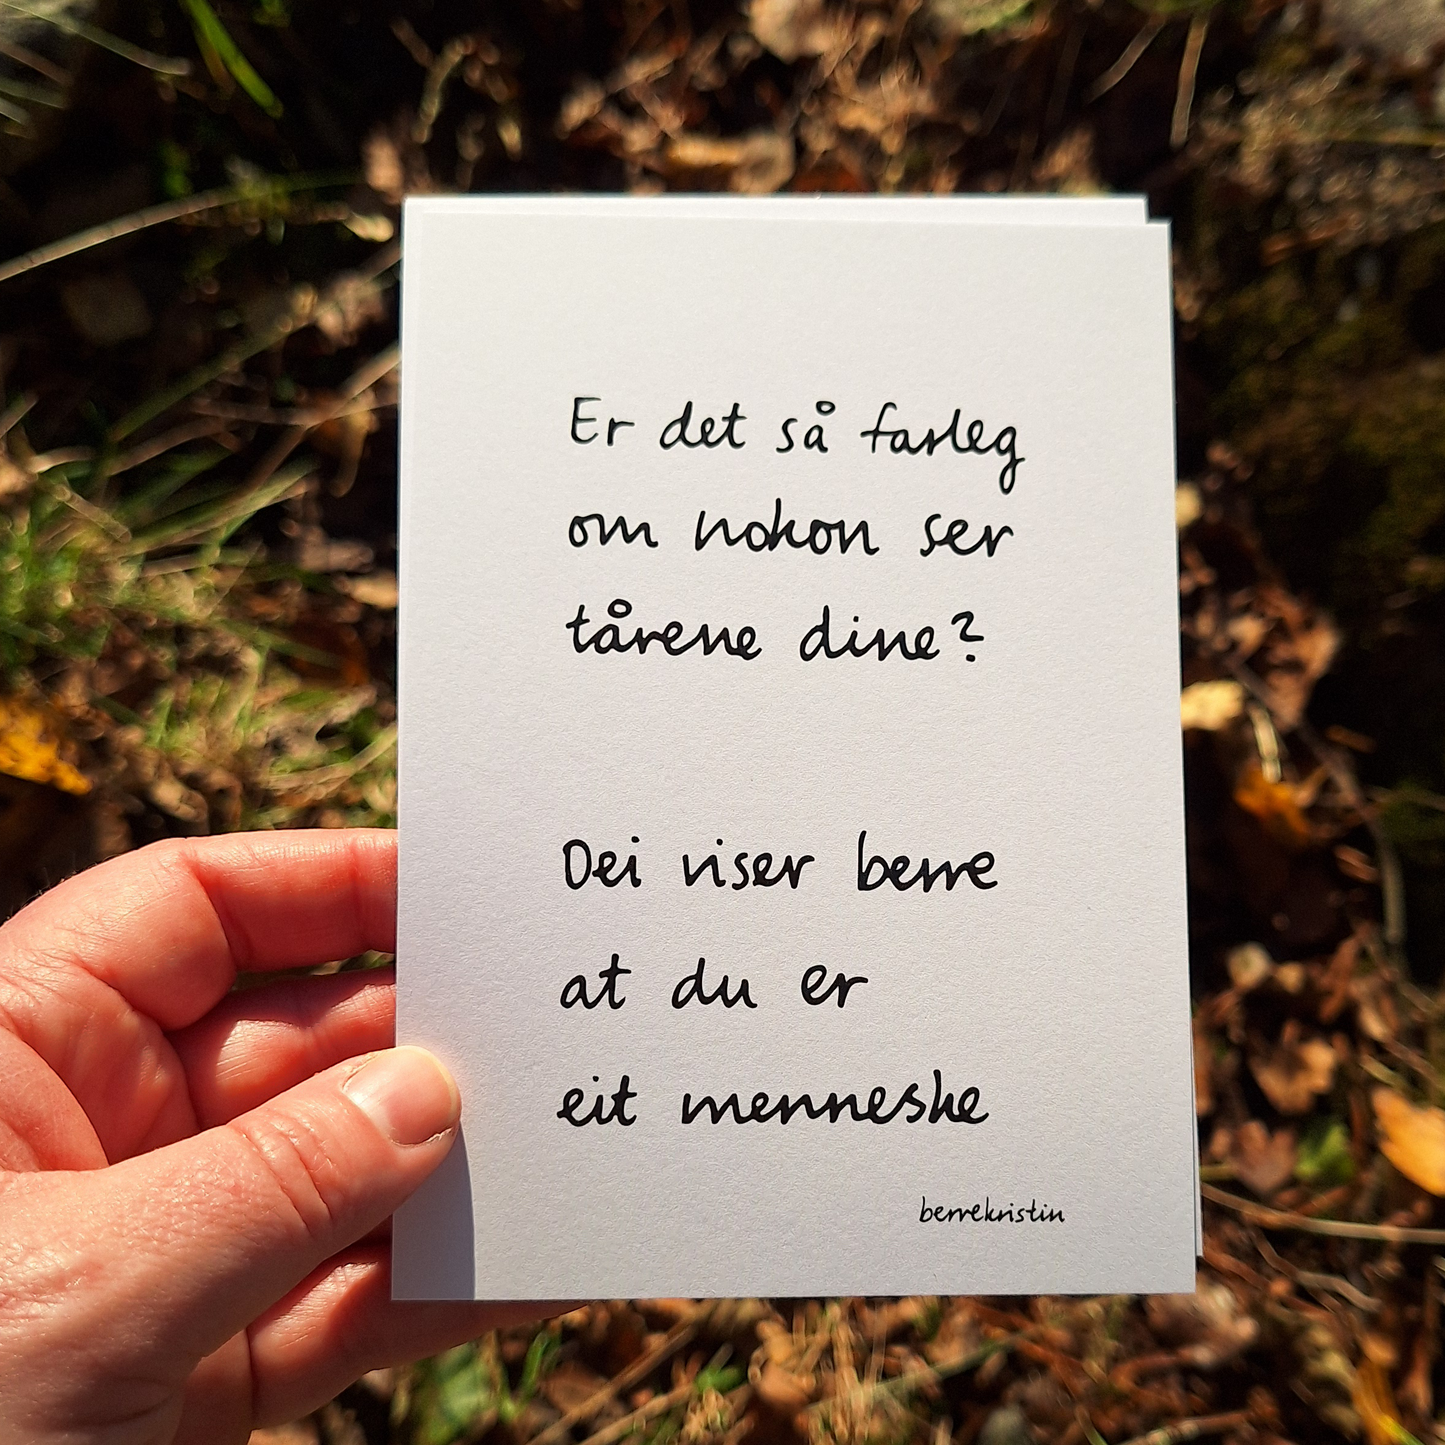 Er det så farleg
om nokon ser
tårene dine?
Dei viser berre
at du er
eit menneske
berrekristin